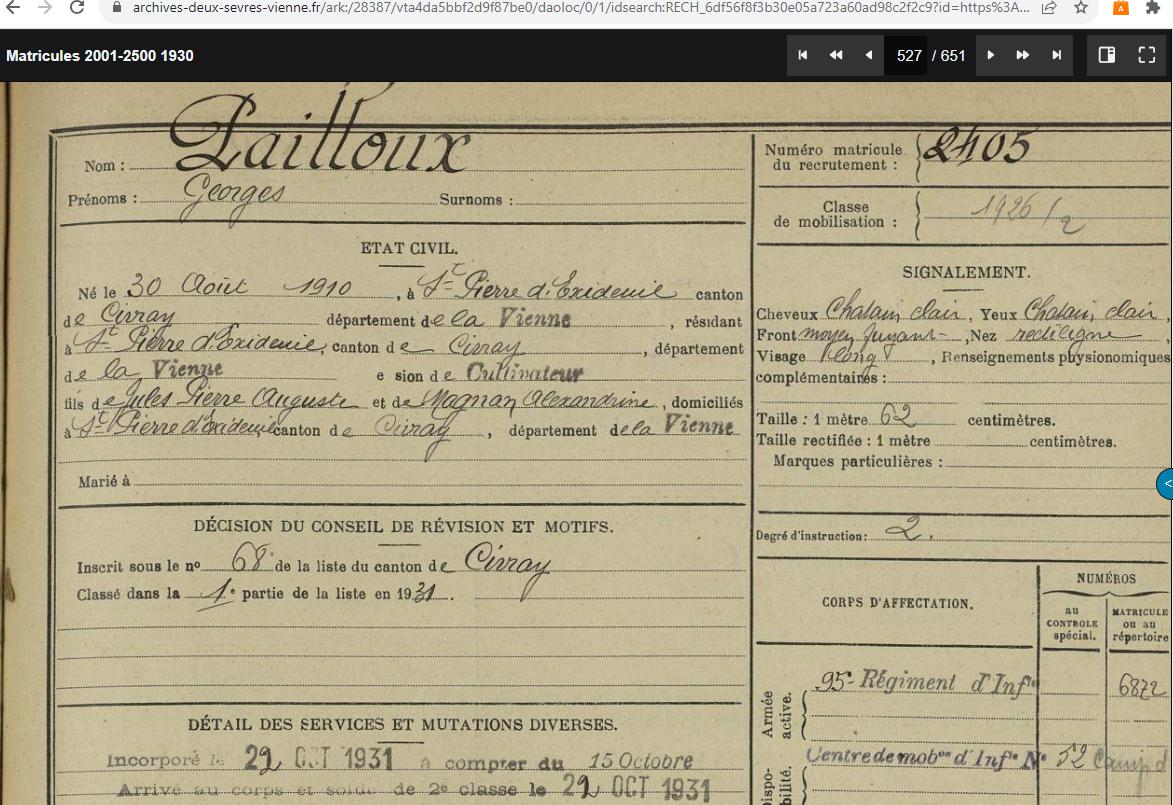 archives-deux-sevres-vienne.fr/ark:/28387/vta4da5bbf2d9f87be0/daoloc/0/1/idsearch:RECH_6df56f8f3b30e05a723a60ad98c2f2c9?id=https%3A...
Matricules 2001-2500 1930
527 / 651
Nom : Pailloux
Prénoms : Georges Surnoms :
Numéro matricule
du recrutement : 2405
Classe
de mobilisation : 1926/2
ETAT CIVIL.
Né le 30 Août 1910, à St Pierre d'Exideuil canton
de Civray département de la Vienne, résidant
à St Pierre d'Exideuil, canton de Civray, département
de la Vienne e sion de Cultivateur
fils de Jules Pierre Auguste et de Magnan Alexandrine, domiciliés
à St Pierre d'Exideuil canton de Civray, département de la Vienne
Marié à
SIGNALEMENT.
Cheveux Chatain clair, Yeux Chatain clair,
Front moyen fuyant, Nez rectiligne
Visage long, Renseignements physionomiques
complémentaires :
Taille : 1 mètre 62 centimètres.
Taille rectifiée : 1 mètre centimètres.
Marques particulières :
Degré d'instruction : 2.
DÉCISION DU CONSEIL DE RÉVISION ET MOTIFS.
Inscrit sous le no 68 de la liste du canton de Civray
Classé dans la 1e partie de la liste en 1931.
CORPS D'AFFECTATION.
NUMÉROS
au
CONTROLE
spécial.
MATRICULE
ou au
répertoire
Armée
active.
95e Régiment d'Infie
6872
DÉTAIL DES SERVICES ET MUTATIONS DIVERSES.
Incorporé le 22 OCT 1931 à compter du 15 Octobre
Arrivé au corps et soldat de 2e classe le 22 OCT 1931
Dispo-
bilité.
Centre de mobon d'Infie No 52 Camp d